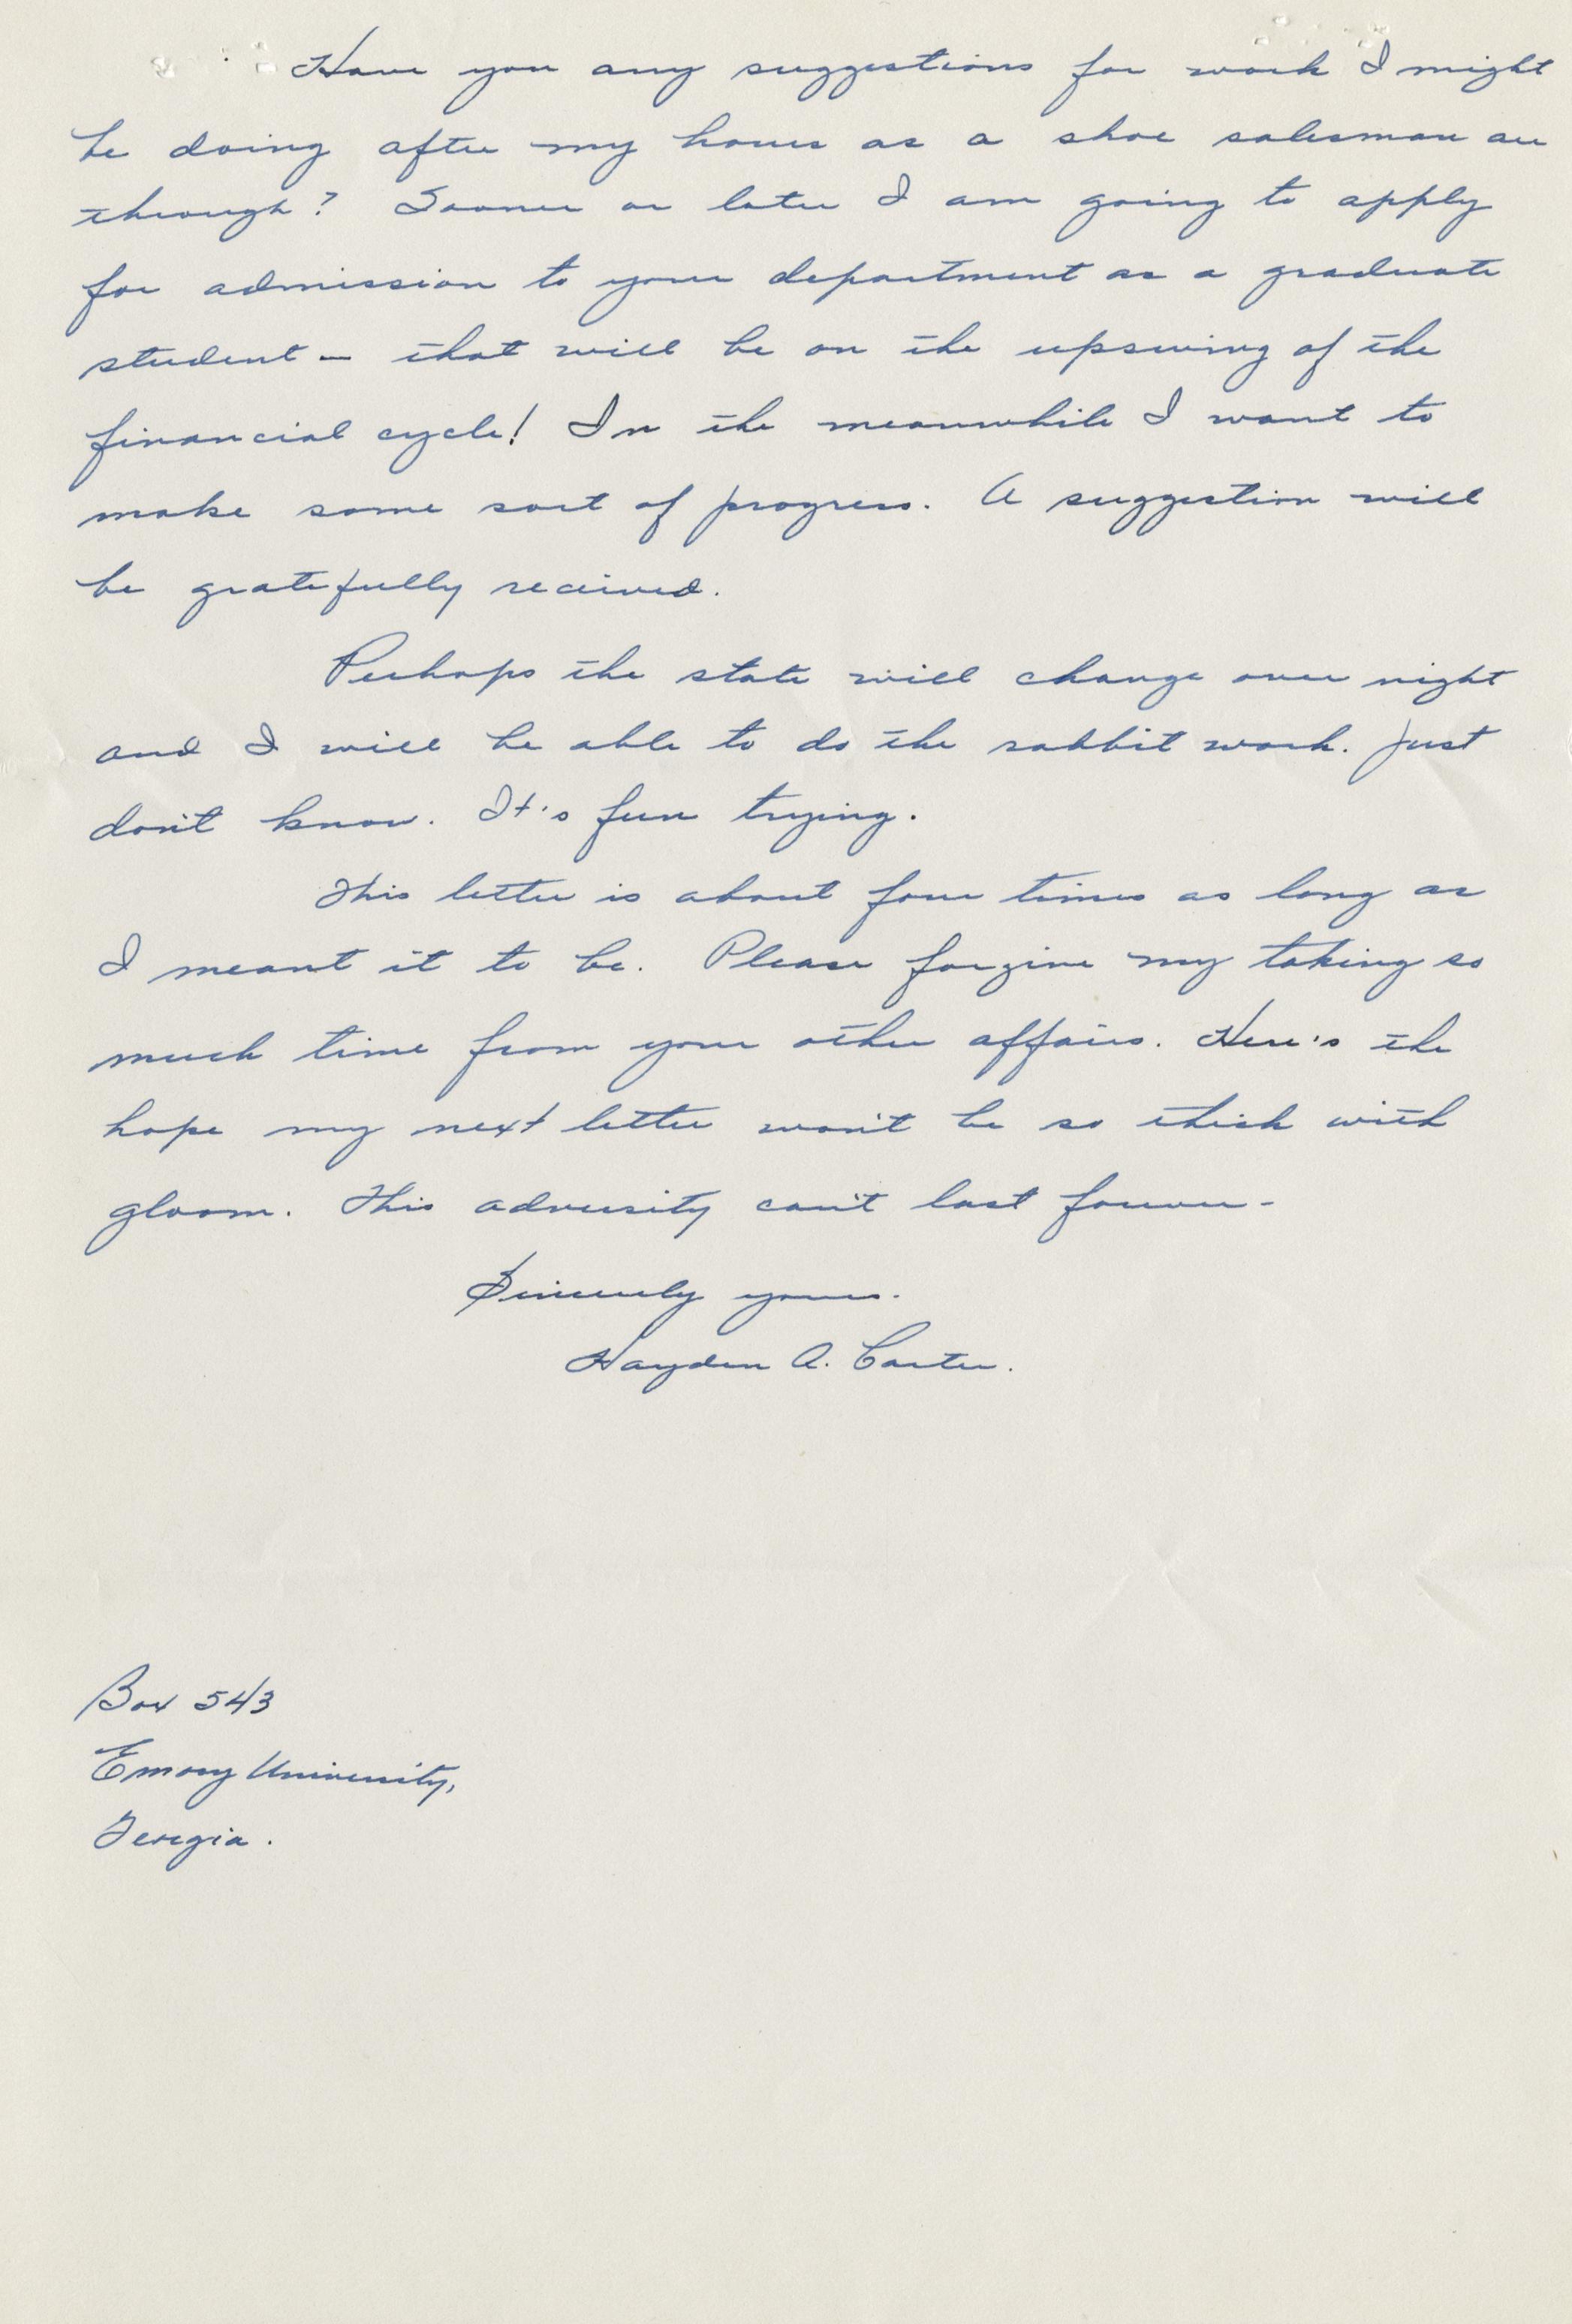 Have you any suggestions for work I might
be doing after my hours as a shoe salesman are
through? Sooner or later I am going to apply
for admission to your department as a graduate
student - that will be on the upswing of the
financial cycle! In the meanwhile I want to
make some sort of progress. A suggestion will
be gratefully received.
Perhaps the state will change over night
and I will be able to do the rabbit work. Just
don't know. It's fun trying.
This letter is about four times as long as
I meant it to be. Please forgive my taking so
much time from your other affairs. Here's the
hope my next letter won't be so thick with
gloom. This adversity can't last forever-
Sincerely yours.
Hayden A. Carter.
Box 543
Emory University,
Georgia.